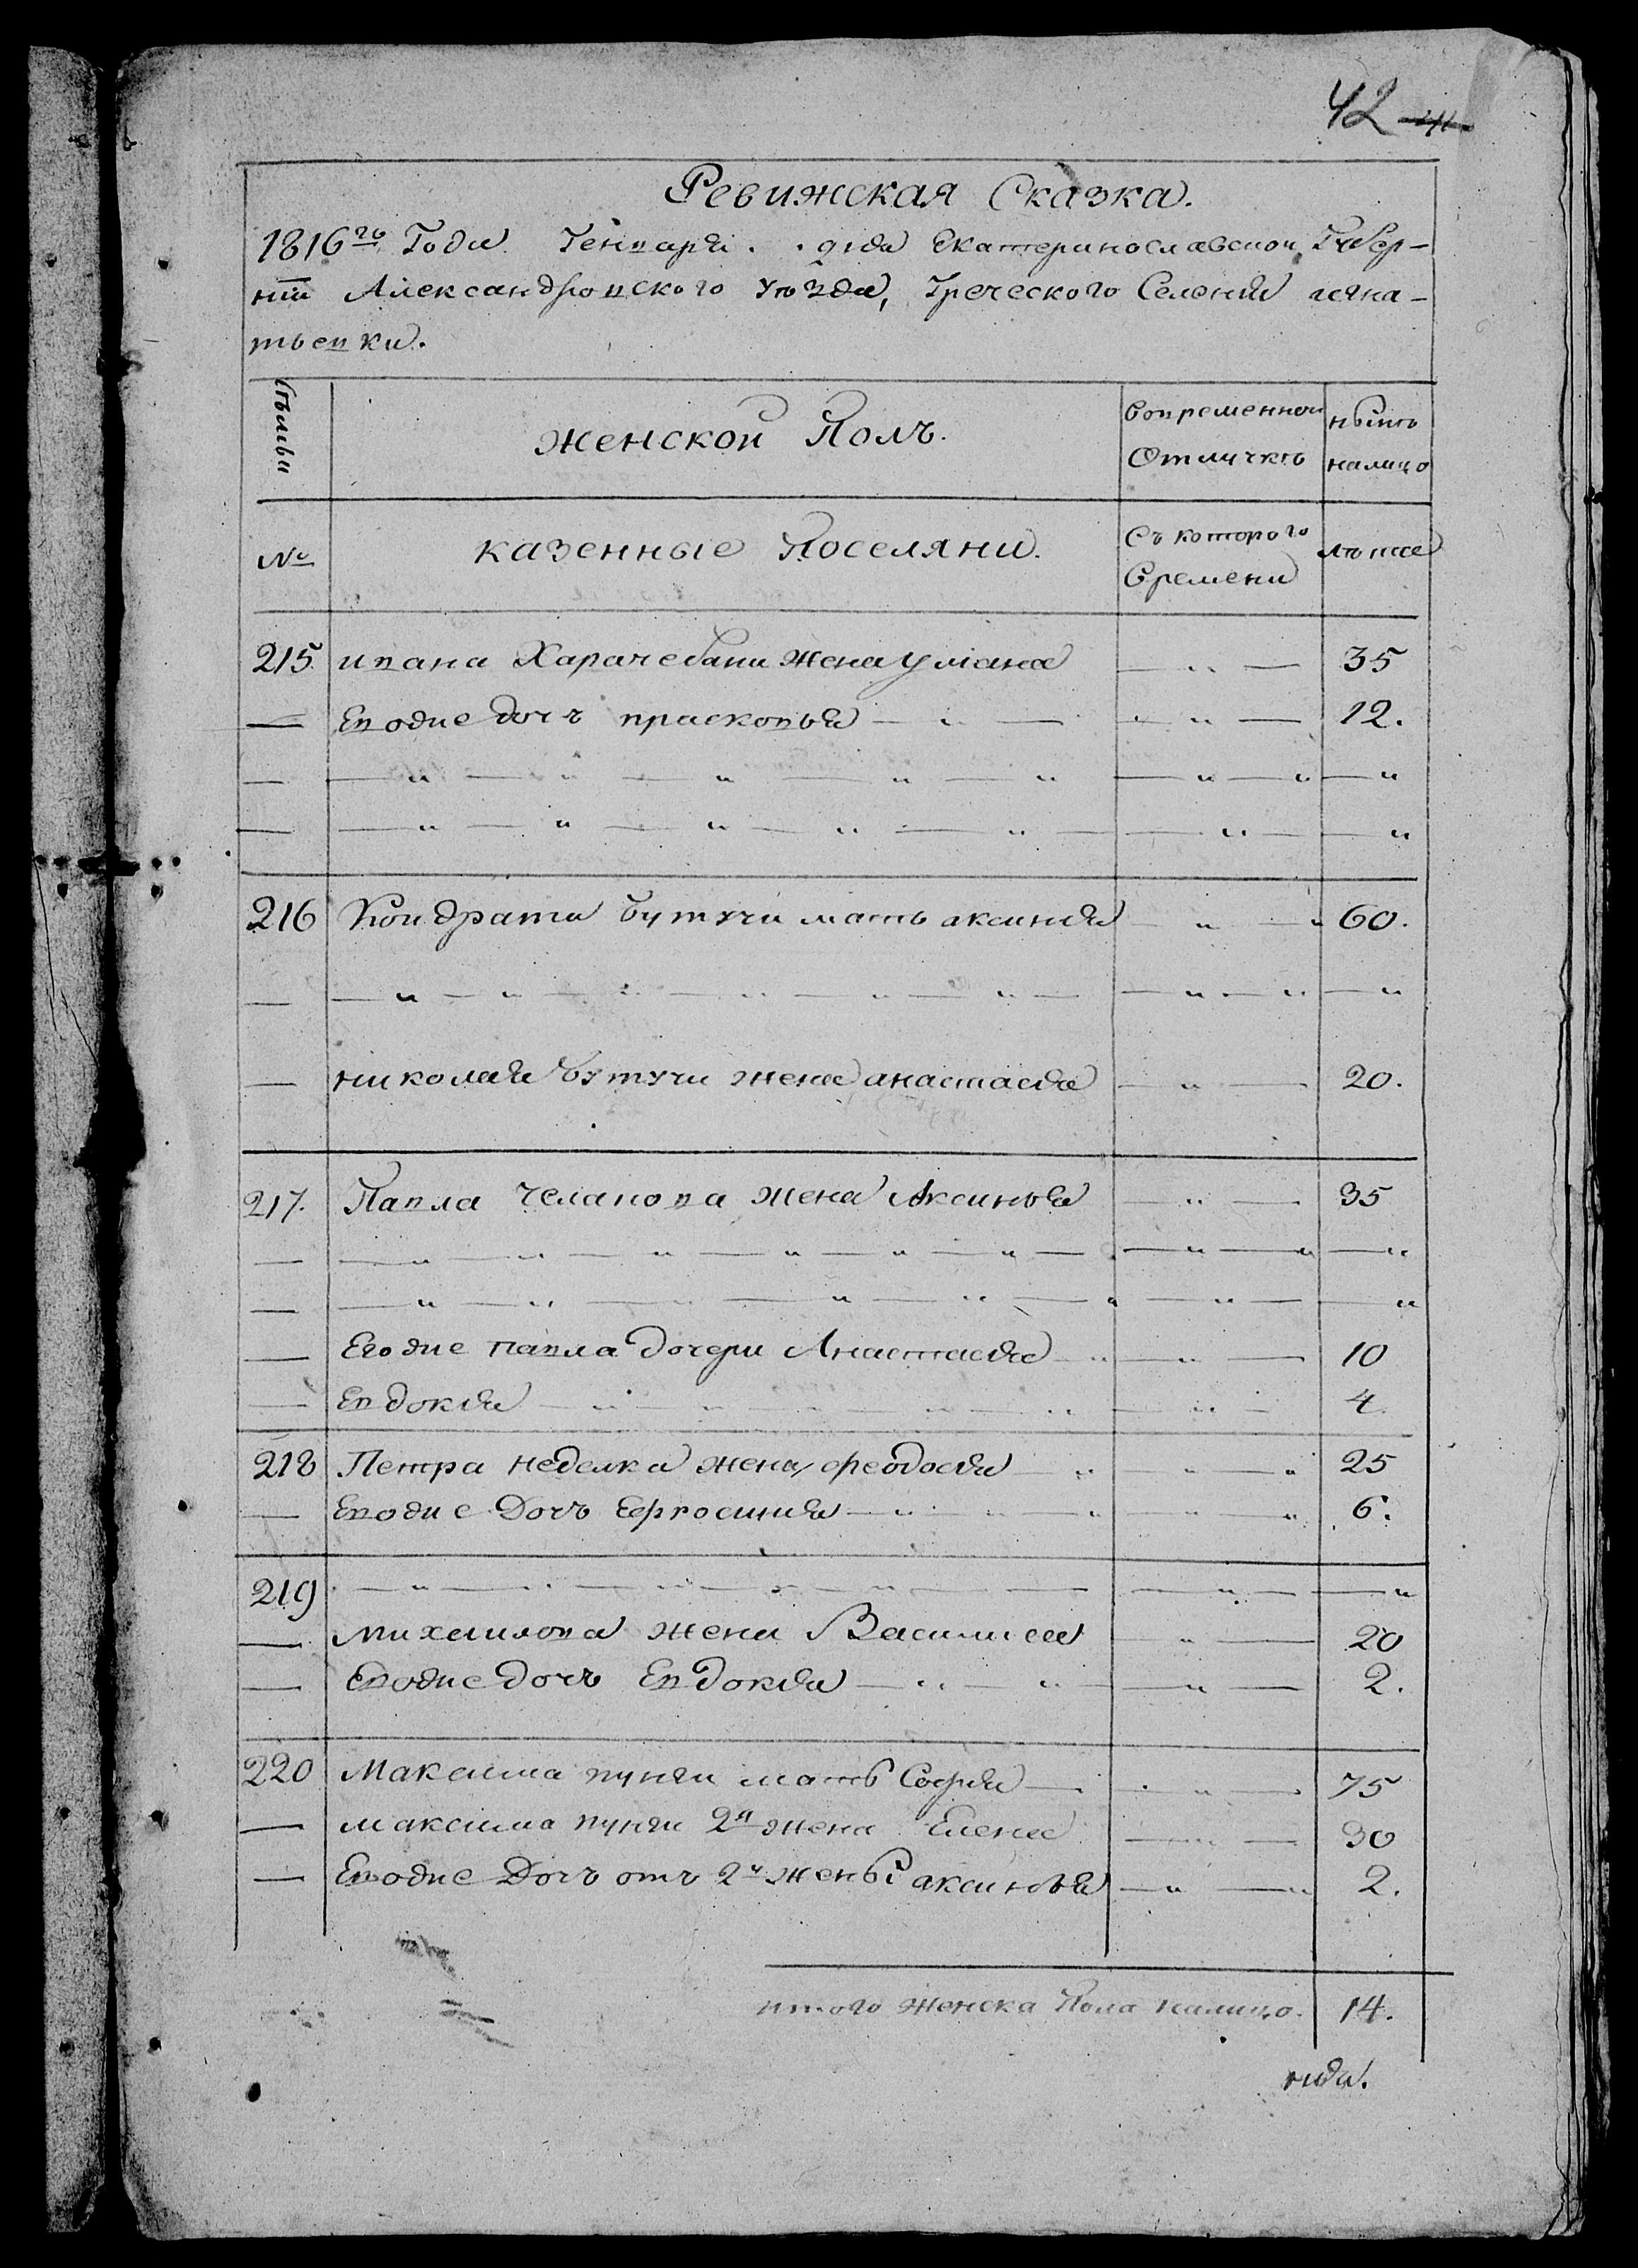 42
Ревижская Сказка.
1816го Года Генваря . . дня Екатеринославской Губер-
нiи Александровского уѣзда, Греческого Селенiя игна-
тьевки.
Семьи
женской Полъ.
вовременной
Отлучкѣ
нынѣ
налицо
№
казенные Поселяни.
Съ которого
Времени
лѣта
215. ивана Харачебаши жена умана — " — 35
— Евоже дочъ прасковья — " — — " — 12.
— — " — " — " — " — " — " — " — "
— — " — " — " — " — " — " — "
216 Кондрата бутучи мать аксинiя — " — 60.
— — " — " — " — " — " — " — " — " — "
— николая бутучи жена анастасiя — " — 20.
217. Павла Челапова жена Аксинья — " — 35
— — " — " — " — " — " — " — " — " — "
— — " — " — " — " — " — " — " — "
— Егоже павла дочери Анастасiя — " — 10
— Евдокiя — " — " — " — " — " — 4.
218 Петра неделка жена феодосiя — " — " — " 25
— Евоже Дочъ Ефросинiя — " — " — " — " 6.
219 — " — " — " — " — " — " — "
— михаилова жена Василиса — " — 20
— Евоже дочъ Евдокiя — " — " — " — 2.
220 Максима пунги мать Софiя — " — 75
— максима пунги 2я жена Елена — " — 30
— Евоже Дочъ отъ 2й жены аксинья — " — 2.
итого женска Пола налицо. 14.